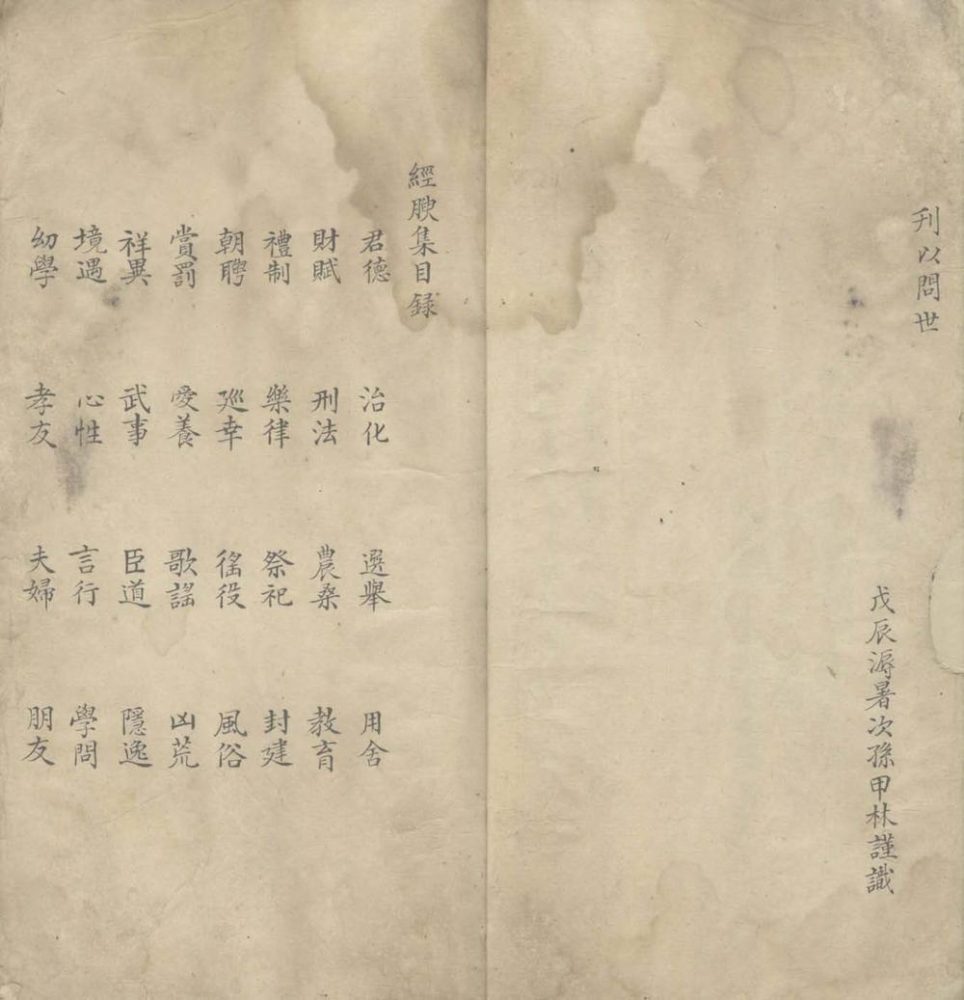 刊以問世
戊辰溽暑次孫甲林謹識
經腴集目錄
君德 治化 選舉 用舍
財賦 刑法 農桑 教育
禮制 樂律 祭祀 封建
朝聘 廵幸 徭役 風俗
賞罰 愛養 歌謠 凶荒
祥異 武事 臣道 隱逸
境遇 心性 言行 學問
幼學 孝友 夫婦 朋友